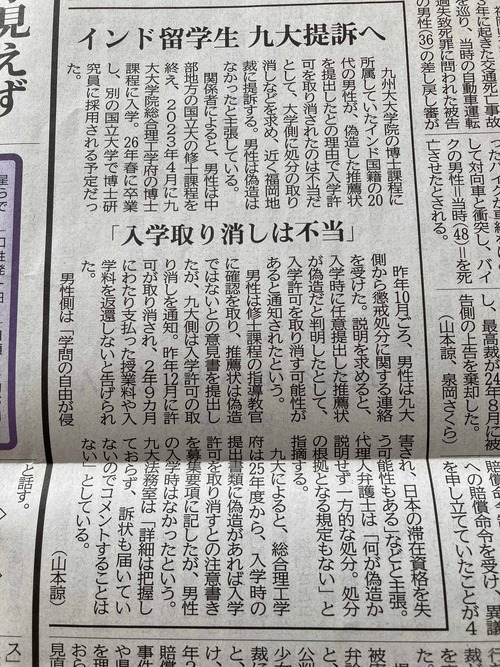 年に起きた交通死亡事故
を巡り、当時の自動車運転
過失致死罪に問われた被告
の男性(36)の差し戻し審が
して対向車と衝突し、バイ
クの男性＝当時(48)＝を死
亡させたとされる。
し、最高裁が24年8月に被
告側の上告を棄却した。
（山本諒、泉岡さくら）
インド留学生 九大提訴へ
「入学取り消しは不当」
九州大大学院の博士課程に
所属していたインド国籍の20
代の男性が、偽造した推薦状
を提出したとの理由で入学許
可を取り消されたのは不当だ
として、大学側に処分の取り
消しなどを求め、近く福岡地
裁に提訴する。男性は偽造は
なかったと主張している。
関係者によると、男性は中
部地方の国立大の修士課程を
終え、2023年4月に九
大大学院総合理工学府の博士
課程に入学。26年春に卒業
し、別の国立大学で博士研
究員に採用される予定だっ
た。
昨年10月ごろ、男性は九大
側から懲戒処分に関する連絡
を受けた。説明を求めると、
入学時に任意提出した推薦状
が偽造だと判明したとして、
入学許可を取り消す可能性が
あると通知されたという。
男性は修士課程の指導教官
に確認を取り、推薦状は偽造
ではないとの意見書を提出し
たが、九大側は入学許可の取
り消しを通知。昨年12月に許
可が取り消され、2年9カ月
にわたり支払った授業料や入
学料を返還しないと告げられ
た。
男性側は「学問の自由が侵
害され、日本の滞在資格を失
う可能性もある」などと主張。
代理人弁護士は「何が偽造か
説明せず一方的な処分。処分
の根拠となる規定もない」と
指摘する。
九大によると、総合理工学
府は25年度から、入学時の
提出書類に偽造があれば入学
許可を取り消すとの注意書き
を募集要項に記したが、男性
の入学時はなかったという。
九大法務室は「詳細は把握し
ておらず、訴状も届いてい
ないのでコメントすることは
ない」としている。
（山本諒）
への賠償命令を受け、異議
を申し立てていたことが4
見えず
と話す。